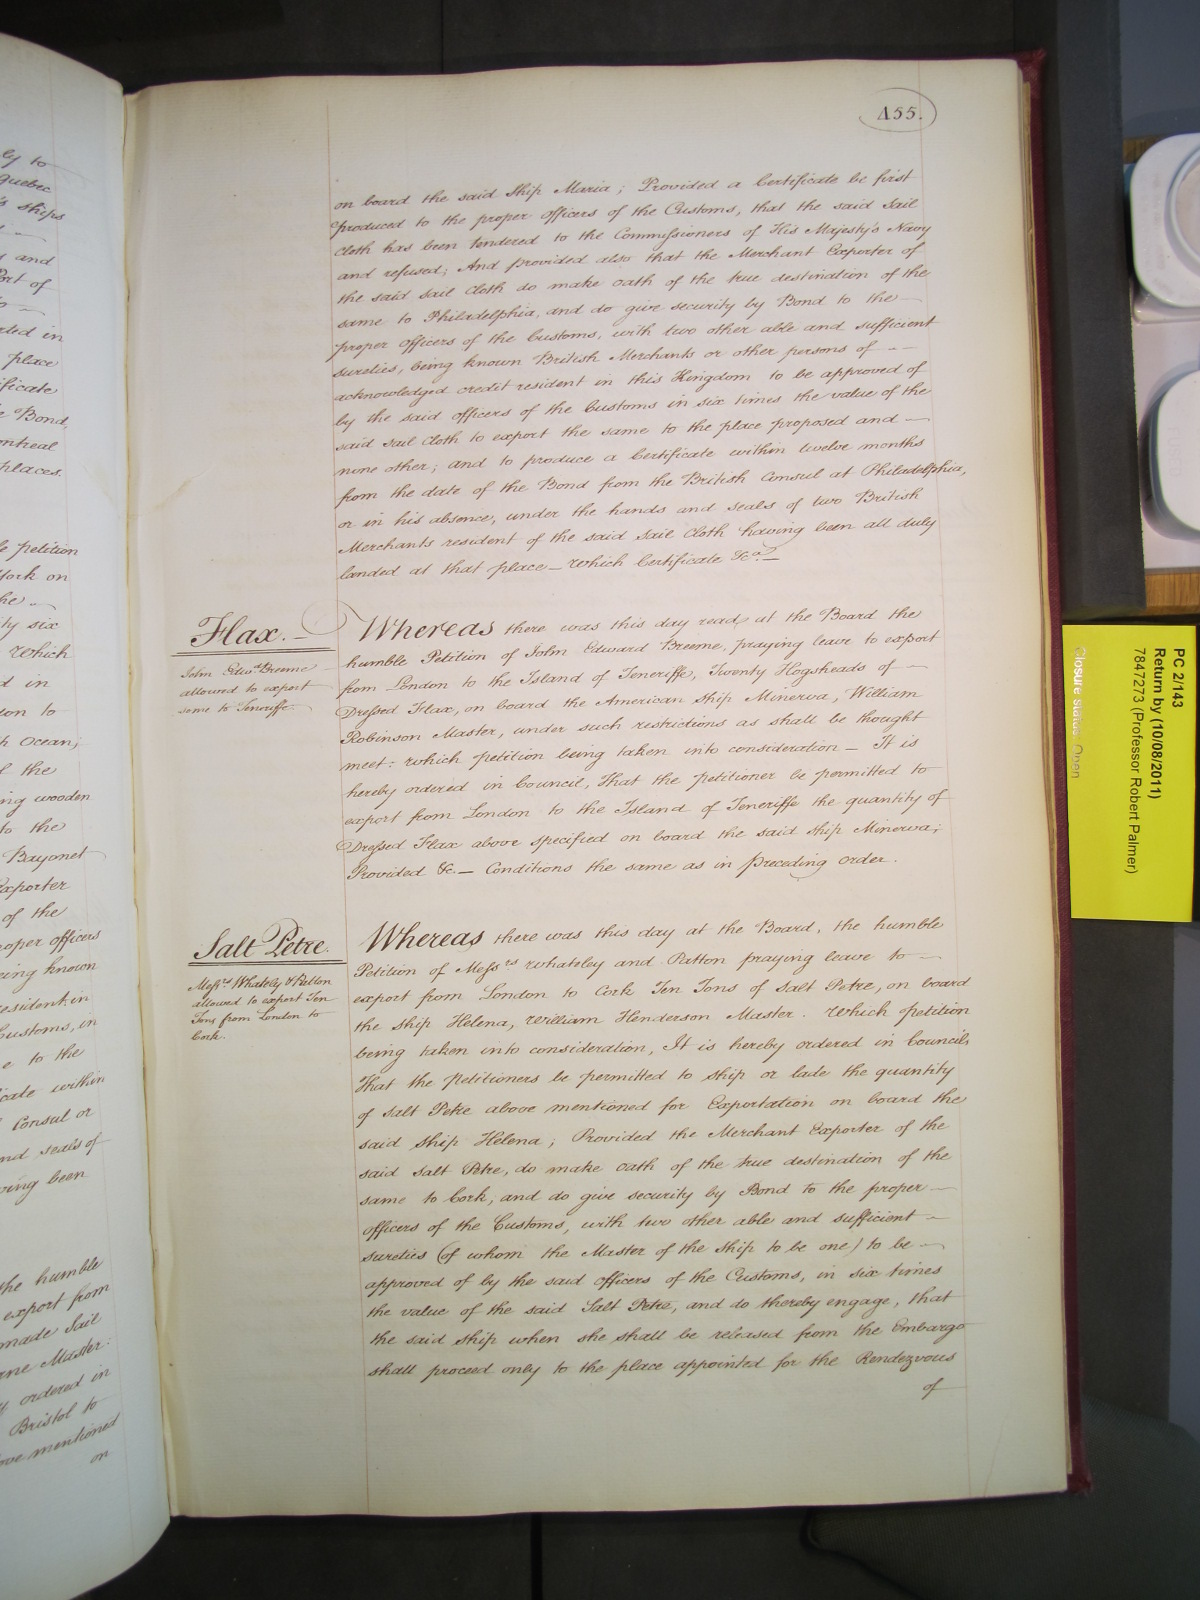 ly to
Quebec
's ships
s and
Port of
rted in
place
ificate
e Bond,
ontreal
places.
le petition
York on
he
ty six
which
d in
don to
h Ocean;
f the
ing wooden
to the
Bayonet
Exporter
of the
roper officers
eing known
resident in
Customs, in
e to the
icate within
Consul or
nd seals of
ving been
the humble
export from
made Sail
rne Master:
ordered in
Bristol to
ove mentioned
on
455.
on board the said Ship Maria; Provided a Certificate be first
produced to the proper officers of the Customs, that the said Sail
Cloth has been tendered to the Commissioners of His Majesty's Navy
and refused; And provided also that the Merchant Exporter of
the said sail Cloth do make oath of the true destination of the
same to Philadelphia, and do give security by Bond to the —
proper officers of the Customs, with two other able and sufficient
sureties, being known British Merchants or other persons of — —
acknowledged credit resident in this Kingdom to be approved of
by the said officers of the Customs in six times the value of the
said sail Cloth to export the same to the place proposed and —
none other; and to produce a Certificate within twelve months
from the date of the Bond from the British Consul at Philadelphia,
or in his absence, under the hands and seals of two British
Merchants resident of the said Sail Cloth having been all duly
landed at that place — which Certificate &ca. —
Flax. —
John Edwd Breeme
allowed to export
same to Teneriffe.
Whereas there was this day read at the Board the
humble Petition of John Edward Breeme, praying leave to export
from London to the Island of Teneriffe, Twenty Hogsheads of —
Dressed Flax, on board the American ship Minerva, William
Robinson Master, under such restrictions as shall be thought
meet: which petition being taken into consideration — It is
hereby ordered in Council, That the petitioner be permitted to
export from London to the Island of Teneriffe the quantity of
Dressed Flax above specified on board the said ship Minerva;
Provided &c. — Conditions the same as in preceding order.
Salt Petre.
Messrs Whateley & Patton
allowed to export Ten
Tons from London to
Cork.
Whereas there was this day at the Board, the humble
Petition of Messrs Whateley and Patton praying leave to —
export from London to Cork Ten Tons of Salt Petre, on board
the ship Helena, William Henderson Master. Which petition
being taken into consideration, It is hereby ordered in Council,
That the Petitioners be permitted to ship or lade the quantity
of Salt Petre above mentioned for Exportation on board the
said ship Helena; Provided the Merchant Exporter of the
said Salt Petre, do make oath of the true destination of the
same to Cork, and do give security by Bond to the proper —
officers of the Customs, with two other able and sufficient —
sureties (of whom the Master of the ship to be one) to be —
approved of by the said officers of the Customs, in six times
the value of the said Salt Petre, and do thereby engage, that
the said ship when she shall be released from the Embargo
shall proceed only to the place appointed for the Rendezvous
of
PC 2/143
Return by (10/08/2011)
7847273 (Professor Robert Palmer)
Closure status: Open